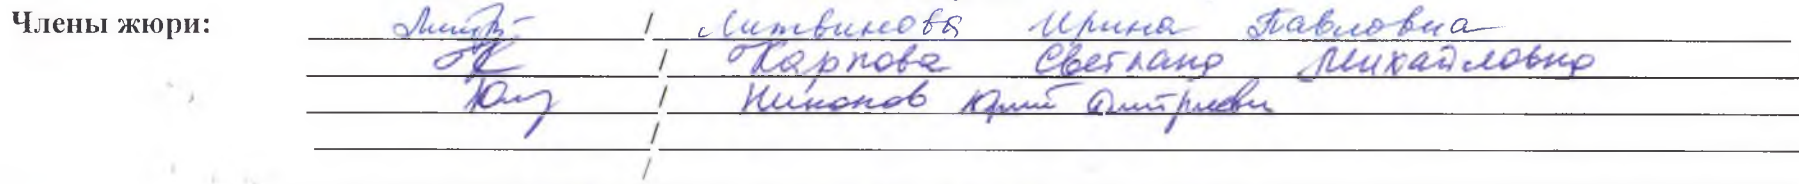 Члены жюри: / Литвинова Ирина Павловна
/ Карпова Светлана Михайловна
/ Юрий Дмитриевич
/
/